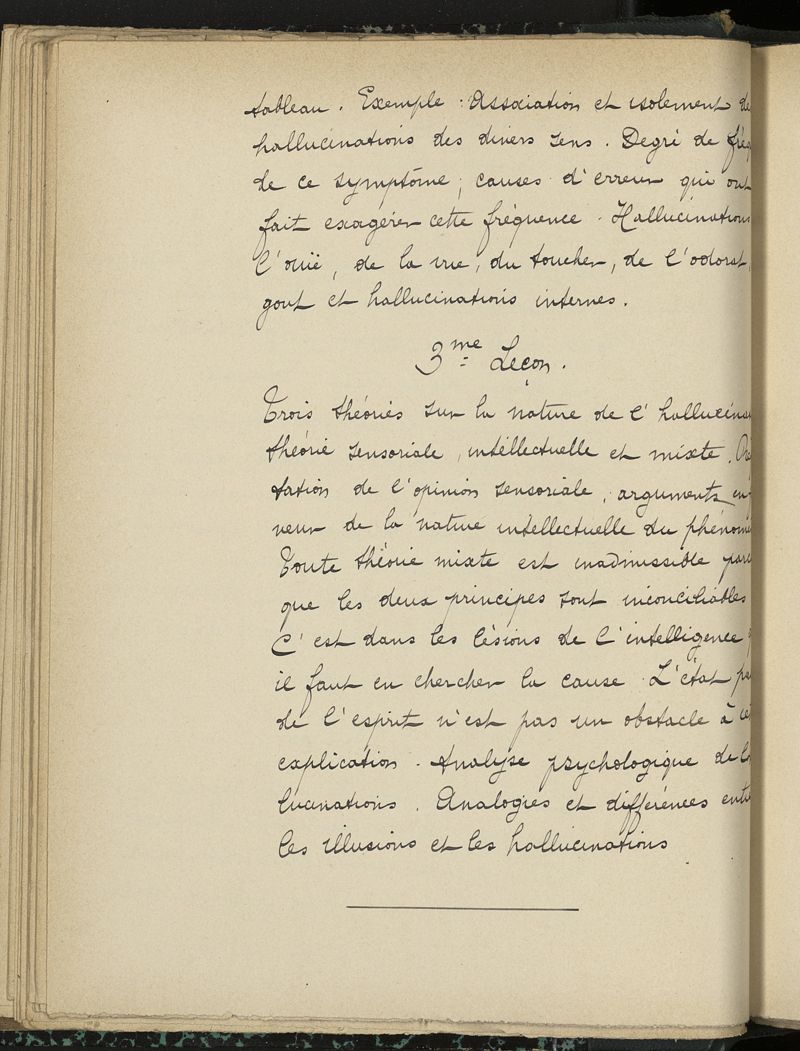 tableau. Exemple : Association et isolement de
hallucinations des divers sens. Degré de fréq
de ce symptôme, causes d'erreur qui ont
fait exagérer cette fréquence. Hallucinations
l'ouïe, de la vue, du toucher, de l'odorat,
gout et hallucinations internes.
3me Leçon.
Trois théories sur la nature de l'hallucina
théorie sensorielle, intellectuelle et mixte.
tation de l'opinion sensoriale, arguments en
veur de la nature intellectuelle du phénomè
Toute théorie mixte est inadmissible parc
que les deux principes sont inconciliables
C'est dans les lésions de l'intelligence
il faut en chercher la cause. L'état pa
de l'esprit n'est pas un obstacle à cet
explication. Analyse psychologique de l
lucinations. Analogies et différences entr
les illusions et les hallucinations